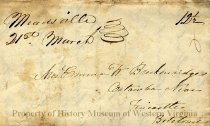 Meadsville 12½
21st March
Mrs Emma W Breckenridge
Catawba near
Fincastle
Botetourt
Property of History Museum of Western Virginia